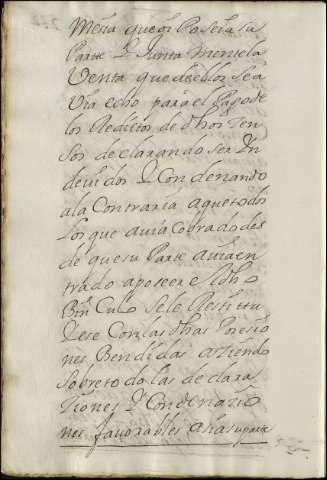 mesa que oy Posee la su
Parte y Junta mente la
Venta que de ellos se a
Via echo para el Pago de
los Reditos de dhos Zen
sos declarando ser Yn
devidos y Condenando
a la Contraria a que todos
los que avia Cobrado des
de que su Parte avia en
trado a poseer el dho
Vinculo se le Restittu
yese Con las dhas Posesio
nes Bendidas aziendo
sobre todo las declara
ziones y Condenazio
nes favorables a la su parte